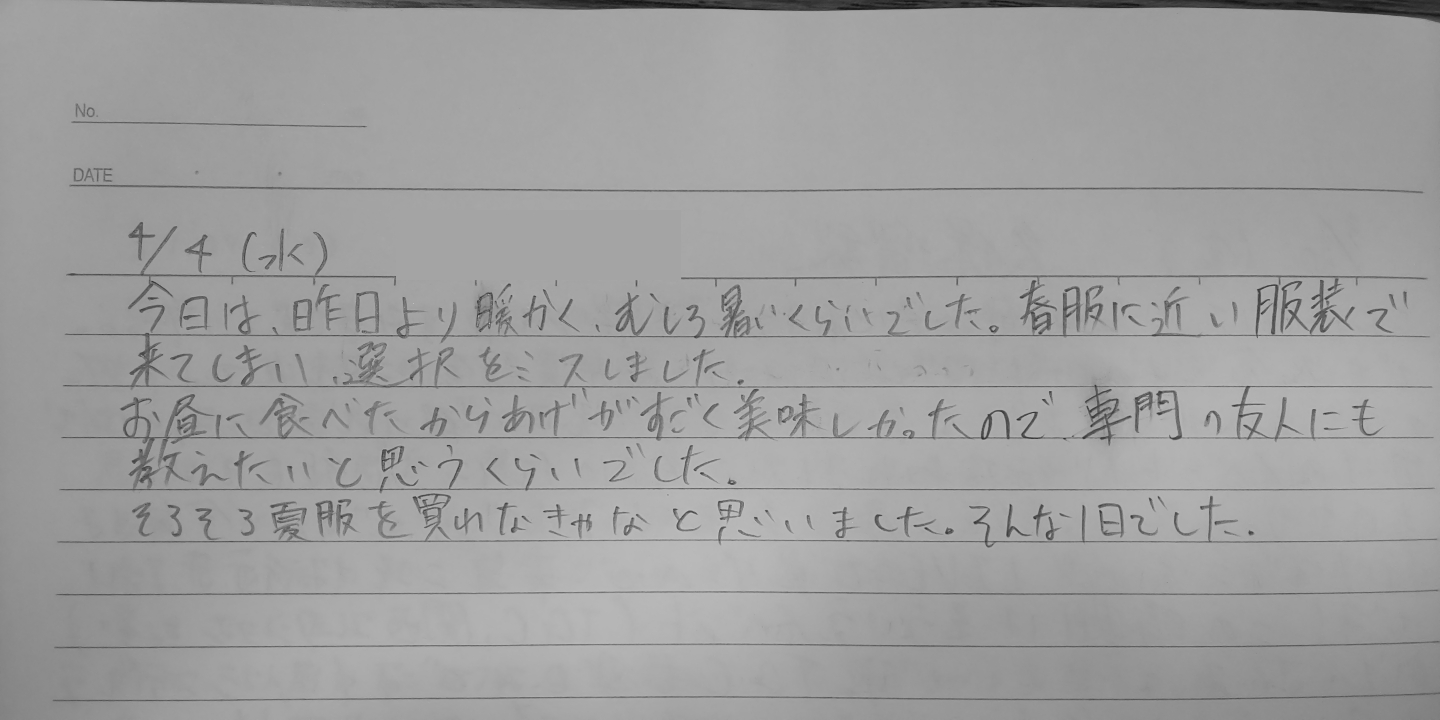 No.
DATE
4/4 (水)
今日は、昨日より暖かく、むしろ暑いくらいでした。春服に近い服装で
来てしまい、選択をミスしました。
お昼に食べたからあげがすごく美味しかったので、専門の友人にも
教えたいと思うくらいでした。
そろそろ夏服を買れなきゃなと思いました。そんな1日でした。